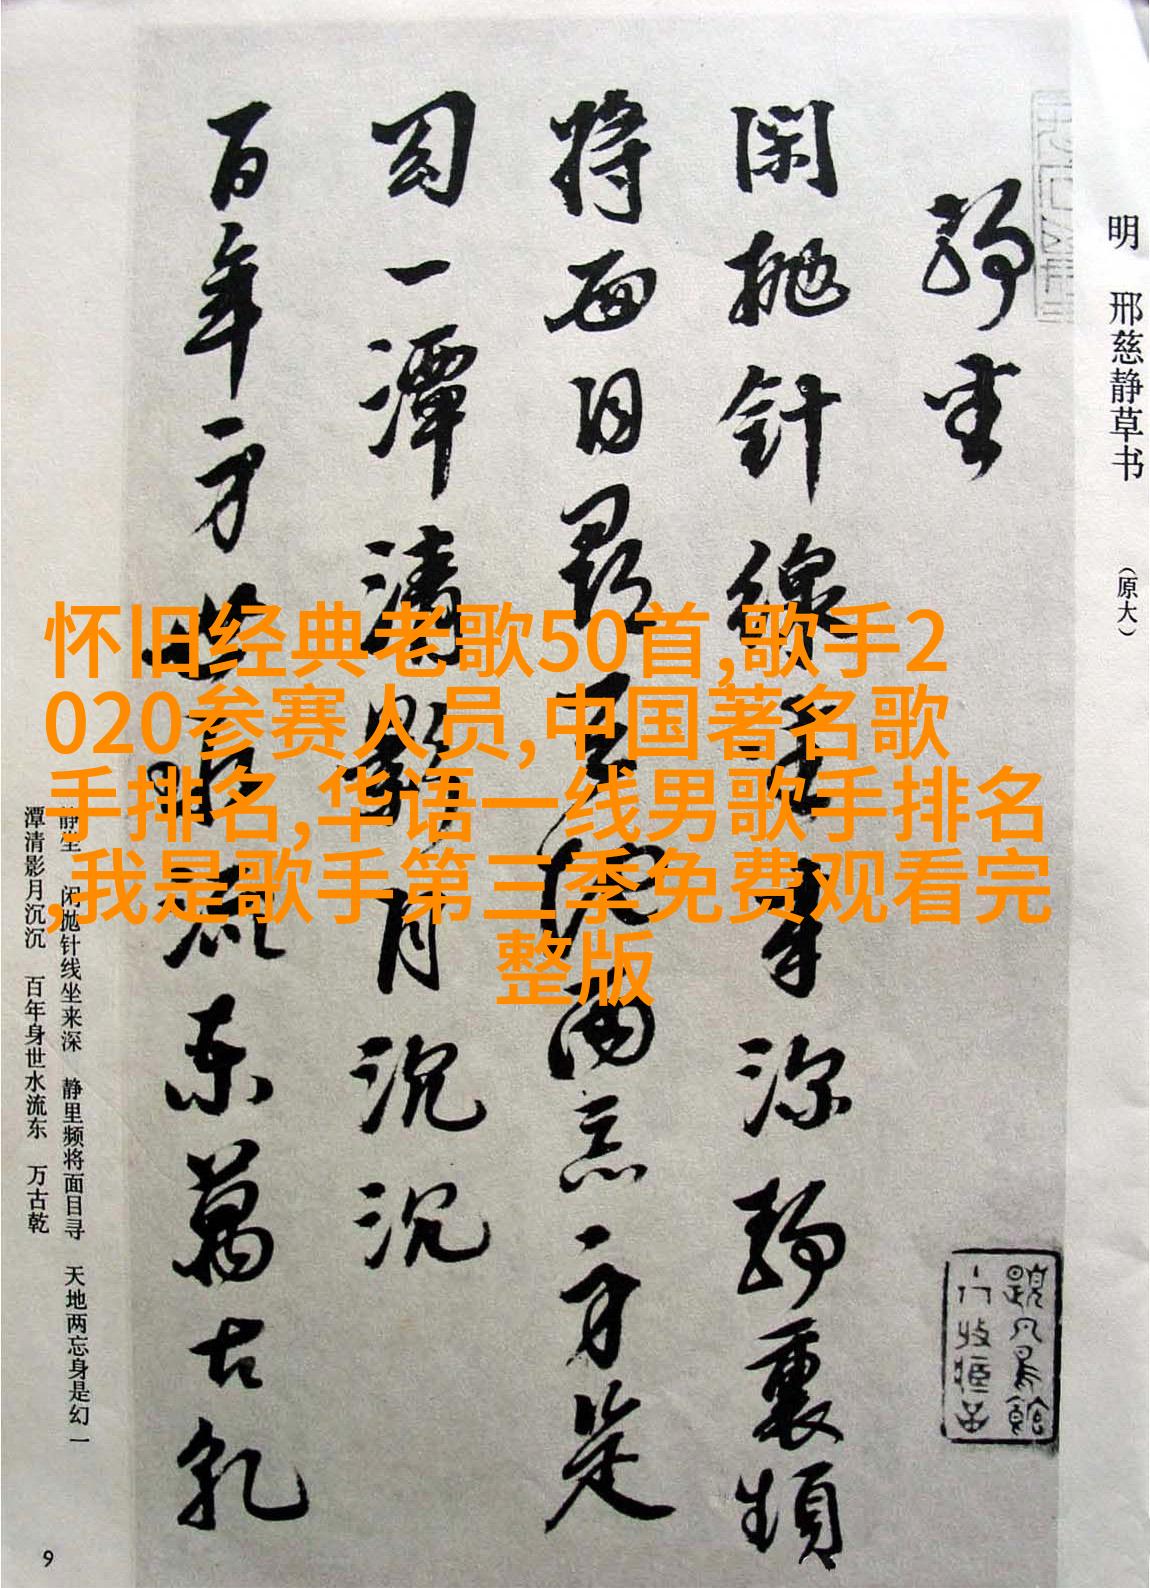 明 邢慈静草书 （原大）
静坐
闲抛针线坐来深静里频
将面目寻天地两忘身是
幻一潭清影月沉沉
百年身世水流东万古乾
静坐 闲抛针线坐来深 静里频将面目寻 天地两忘身是幻 一
潭清影月沉沉 百年身世水流东 万古乾
9
怀旧经典老歌50首,歌手2
020参赛人员,中国著名歌
手排名,华语一线男歌手排名
,我是歌手第三季免费观看完
整版